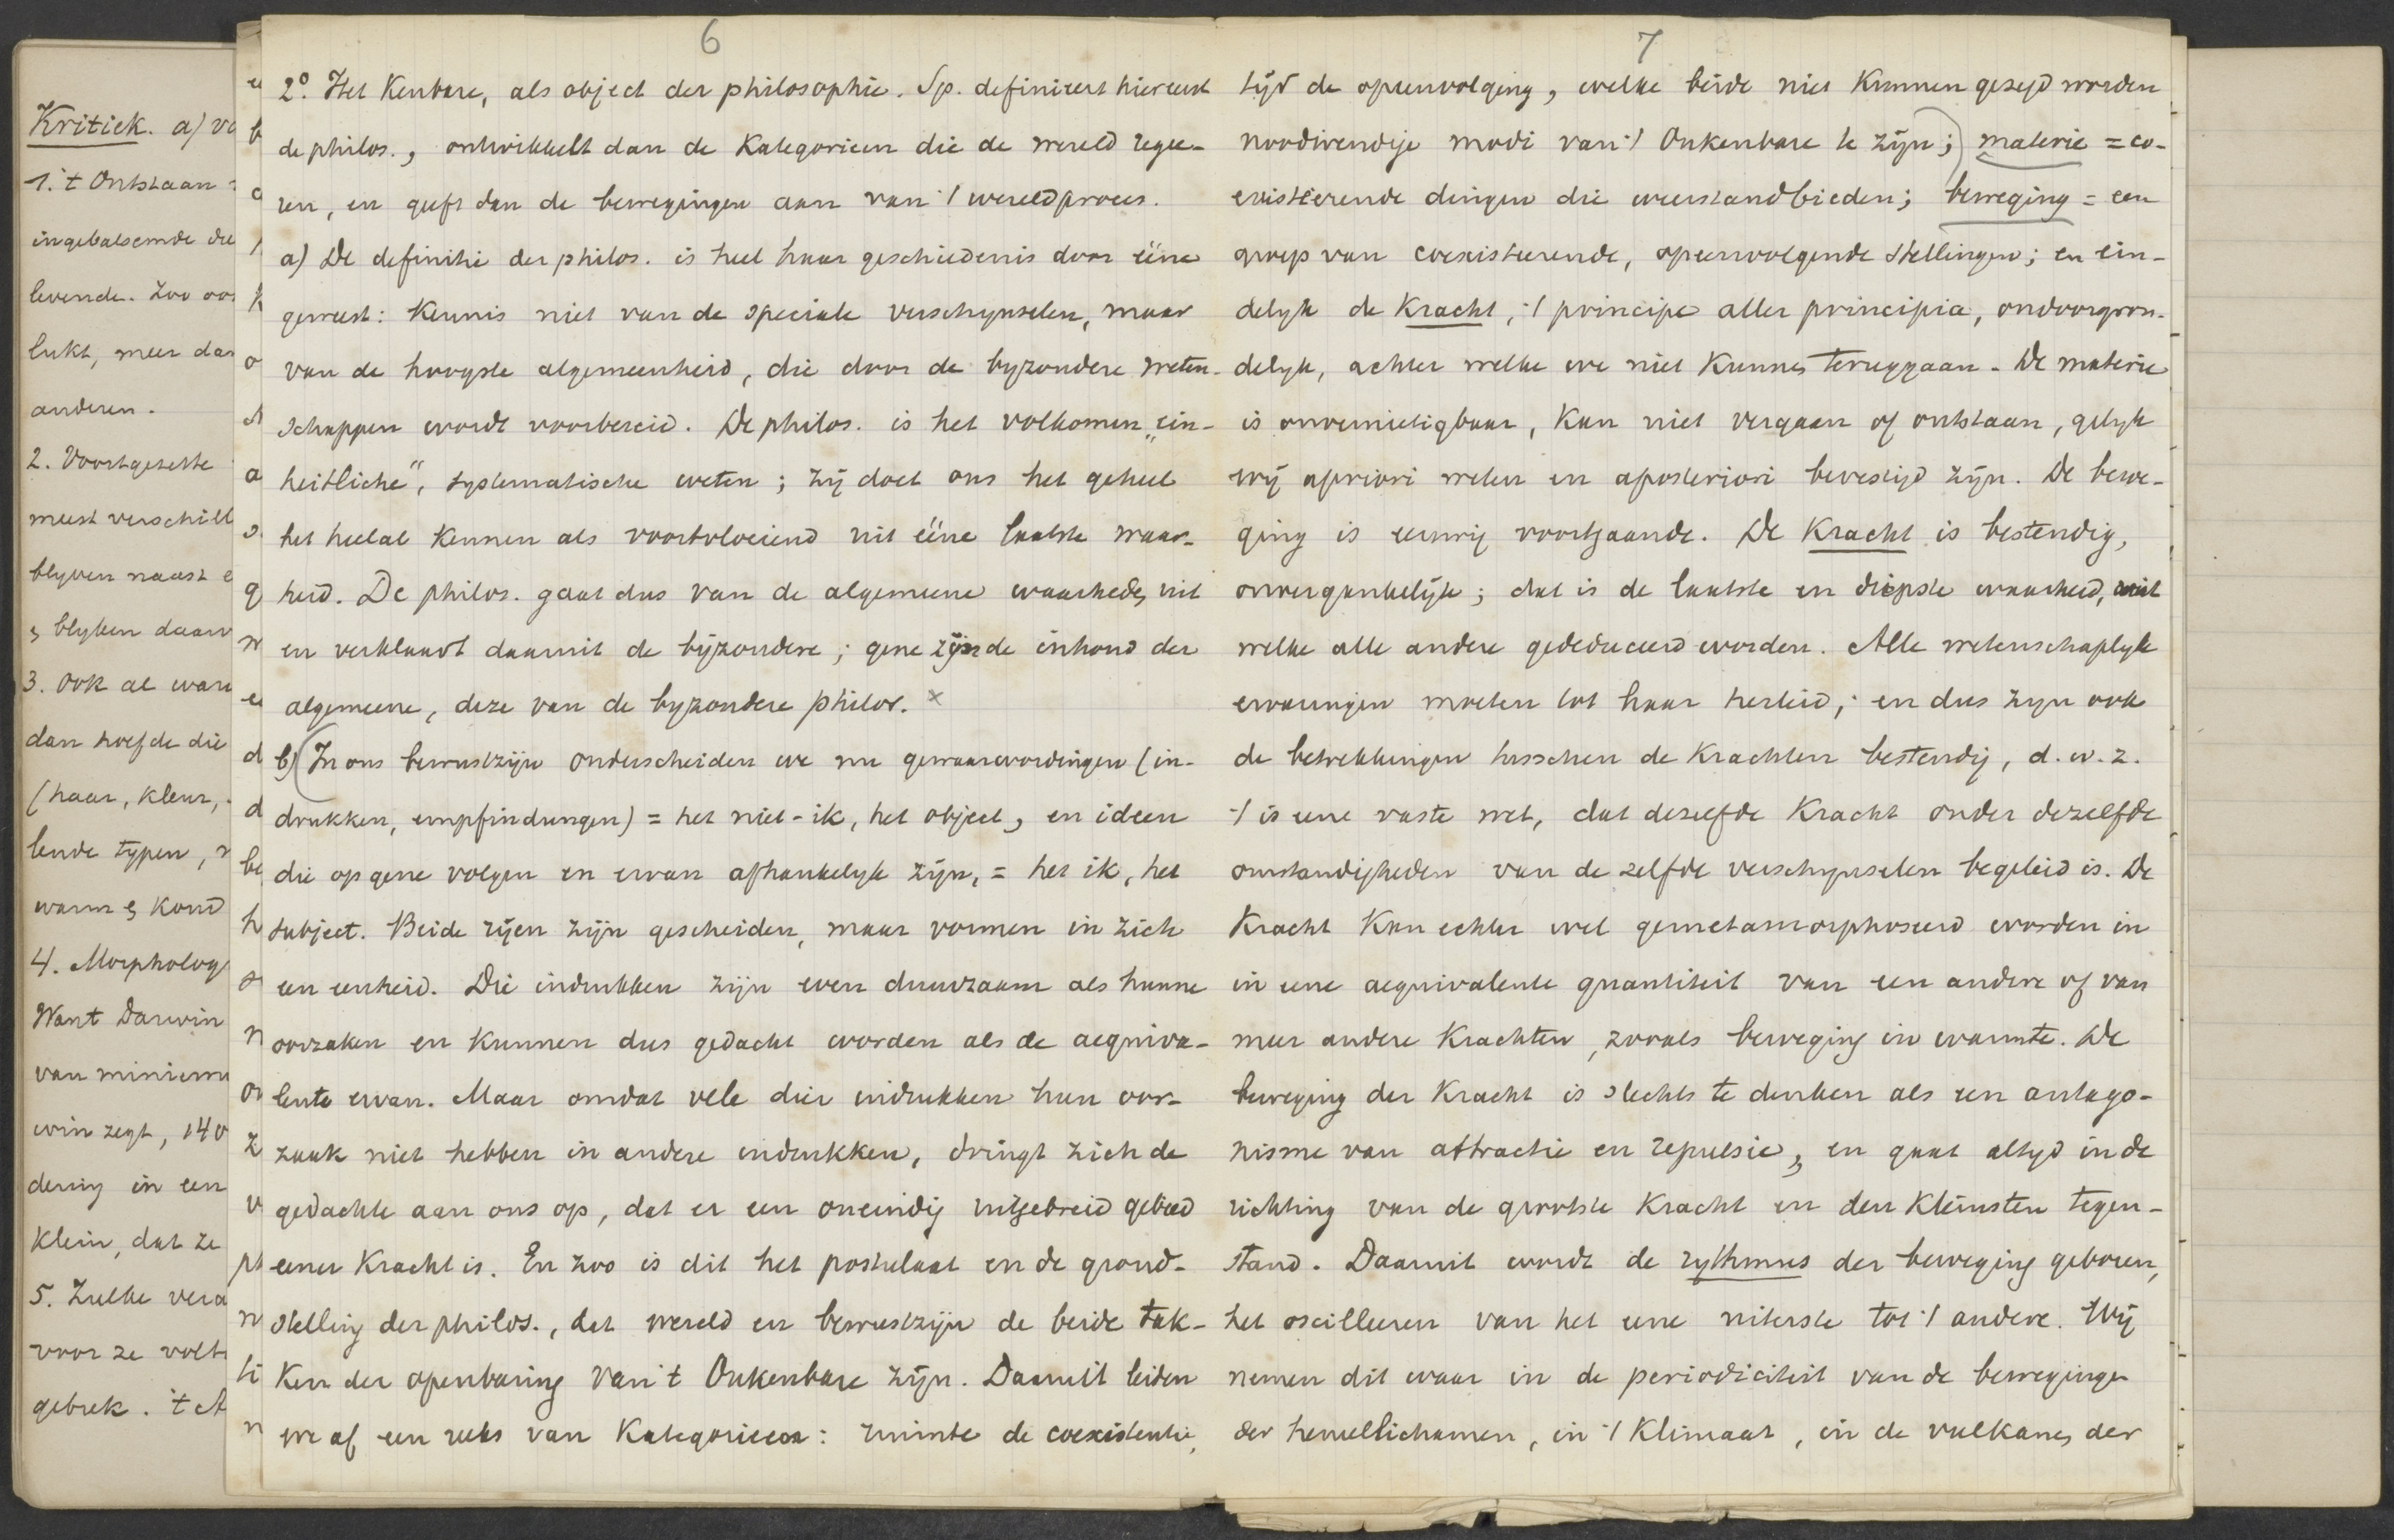 Kritiek. a) vo
1. 't Ontstaan
ingebalsemde die
levende. Zoo oo
lukt, meer dan
anderen.
2. Voortgezette
meest verschill
blyven naast e
& blyken daarv
3. Ook al ware
dan hoefde die
(haar, kleur,
lende typen,
warm & koud
4. Morpholog
Want Darwin
van miniem
win zegt, 140
dering in een
Klein, dat ze
5. Zulke vera
voor ze volt
gebrek. 't A
6
2° Het Kenbare, als object der philosophie. Sp. definieert hiereerst
de philos., ontwikkelt dan de Kategorieen die de wereld regee-
ren, en geeft dan de bewegingen aan van 't wereldproces.
a) De definitie der philos. is heel haar geschiedenis door ééne
geweest: Kennis niet van de speciale verschynselen, maar
van de hoogste algemeenheid, die door de byzondere weten-
schappen wordt voorbereid. De philos. is het volkomen „ein-
heitliche", systematische weten; zij doet ons het geheel
het heelal Kennen als voortvloeiend uit ééne laatste waar-
heid. De philos. gaat dus van de algemeene waarheden uit
en verklaart daaruit de bijzondere; gene zijn de inhoud der
algemeene, deze van de byzondere philos. ×
b) (In ons bewustzijn onderscheiden we nu gewaarwordingen (in-
drukken, empfindungen) = het niet-ik, het object, en ideen
die op gene volgen en ervan afhankelyk zijn, = het ik, het
subject. Beide rijen zijn gescheiden, maar vormen in zich
een eenheid. Die indrukken zijn even duurzaam als hunne
oorzaken en Kunnen dus gedacht worden als de aequiva-
lente ervan. Maar omdat vele dier indrukken hun oor-
zaak niet hebben in andere indrukken, dringt zich de
gedachte aan ons op, dat er een oneindig uitgebreid gebied
eener Kracht is. En zoo is dit het postulaat en de grond-
stelling der philos., dat wereld en bewustzijn de beide tak-
ken der openbaring van 't Onkenbare zijn. Daaruit leiden
we af een reeks van Kategorieen: ruimte de coexistentie,
7
tijd de opeenvolging, welke beide niet Kunnen gezegd worden
noodwendige modi van 't Onkenbare te zijn;) materie = co-
existeerende dingen die weerstand bieden; beweging = een
groep van coexisteerende, opeenvolgende stellingen; en ein-
delyk de Kracht, 't principe aller principia, ondoorgron-
delyk, achter welke we niet Kunnen teruggaan. De materie
is onvernietigbaar, Kan niet vergaan of ontstaan, gelyk
wij apriori weten en aposteriori bevestigd zijn. De bewe-
ging is eeuwig voortgaande. De Kracht is bestendig,
onvergankelijk; dat is de laatste en diepste waarheid, uit
welke alle andere gededuceerd worden. Alle wetenschaplyke
ervaringen moeten tot haar herleid; en dus zyn ook
de betrekkingen tusschen de Krachten bestendig, d.w.z.
't is eene vaste wet, dat dezelfde Kracht onder dezelfde
omstandigheden van de zelfde verschynselen begeleid is. De
Kracht Kan echter wel gemetamorphoseerd worden in
in eene aequivalente quantiteit van een andere of van
meer andere Krachten, zooals beweging in warmte. De
beweging der Kracht is slechts te denken als een antago-
nisme van attractie en repulsie, en gaat altyd in de
richting van de grootste Kracht en den Kleinsten tegen-
stand. Daaruit wordt de rythmus der beweging geboren,
het oscilleeren van het eene uiterste tot 't andere. Wij
nemen dit waar in de periodiciteit van de bewegingen
der hemellichamen, in 't Klimaat, in de vulkanen, der